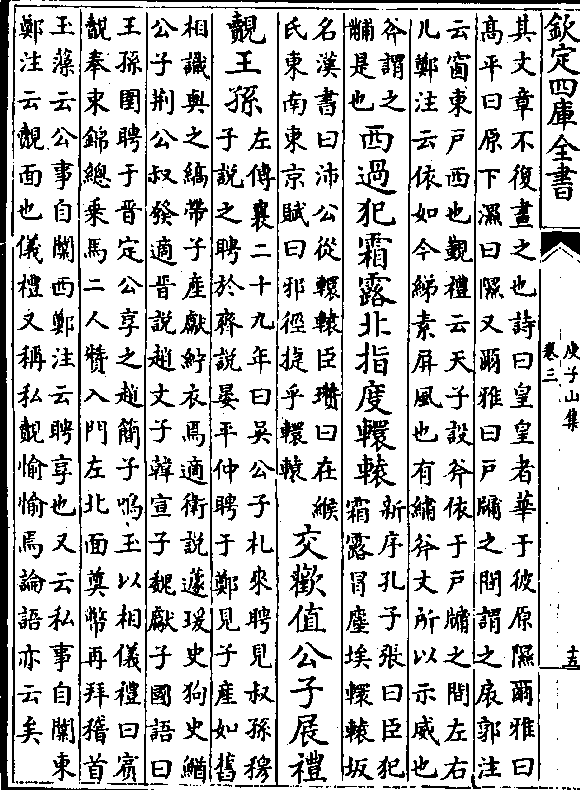 欽定四庫全書
庾子山集
卷三
十五
其文章不復畫之也詩曰皇皇者華于彼原隰爾雅曰
髙平曰原下濕曰隰又爾雅曰戶牖之間謂之扆郭注
云窗東戶西也覲禮云天子設斧依于戶牖之間左右
几鄭注云依如今綈素屏風也有繡斧文所以示威也
斧謂之
黼是也
西過犯霜露北指度轘轅
新序孔子張曰臣犯
霜露冒塵埃轘轅坂
名漢書曰沛公從轘轅臣瓚曰在緱
氏東南東京賦曰邪徑捷乎轘轅
交歡值公子展禮
覿王孫
左傳襄二十九年曰吳公子札來聘見叔孫穆
子說之聘於齊說晏平仲聘于鄭見子產如舊
相識與之縞帶子產獻紵衣焉適衛說蘧瑗史狗史鰌
公子荆公叔發適晉說趙文子韓宣子魏獻子國語曰
王孫圉聘于晉定公享之趙簡子鳴玉以相儀禮曰賓
覿奉束錦總乗馬二人贊入門左北面奠幣再拜稽首
玉藻云公事自闑西鄭注云聘享也又云私事自闑東
鄭注云覿面也儀禮又稱私覿愉愉焉論語亦云矣